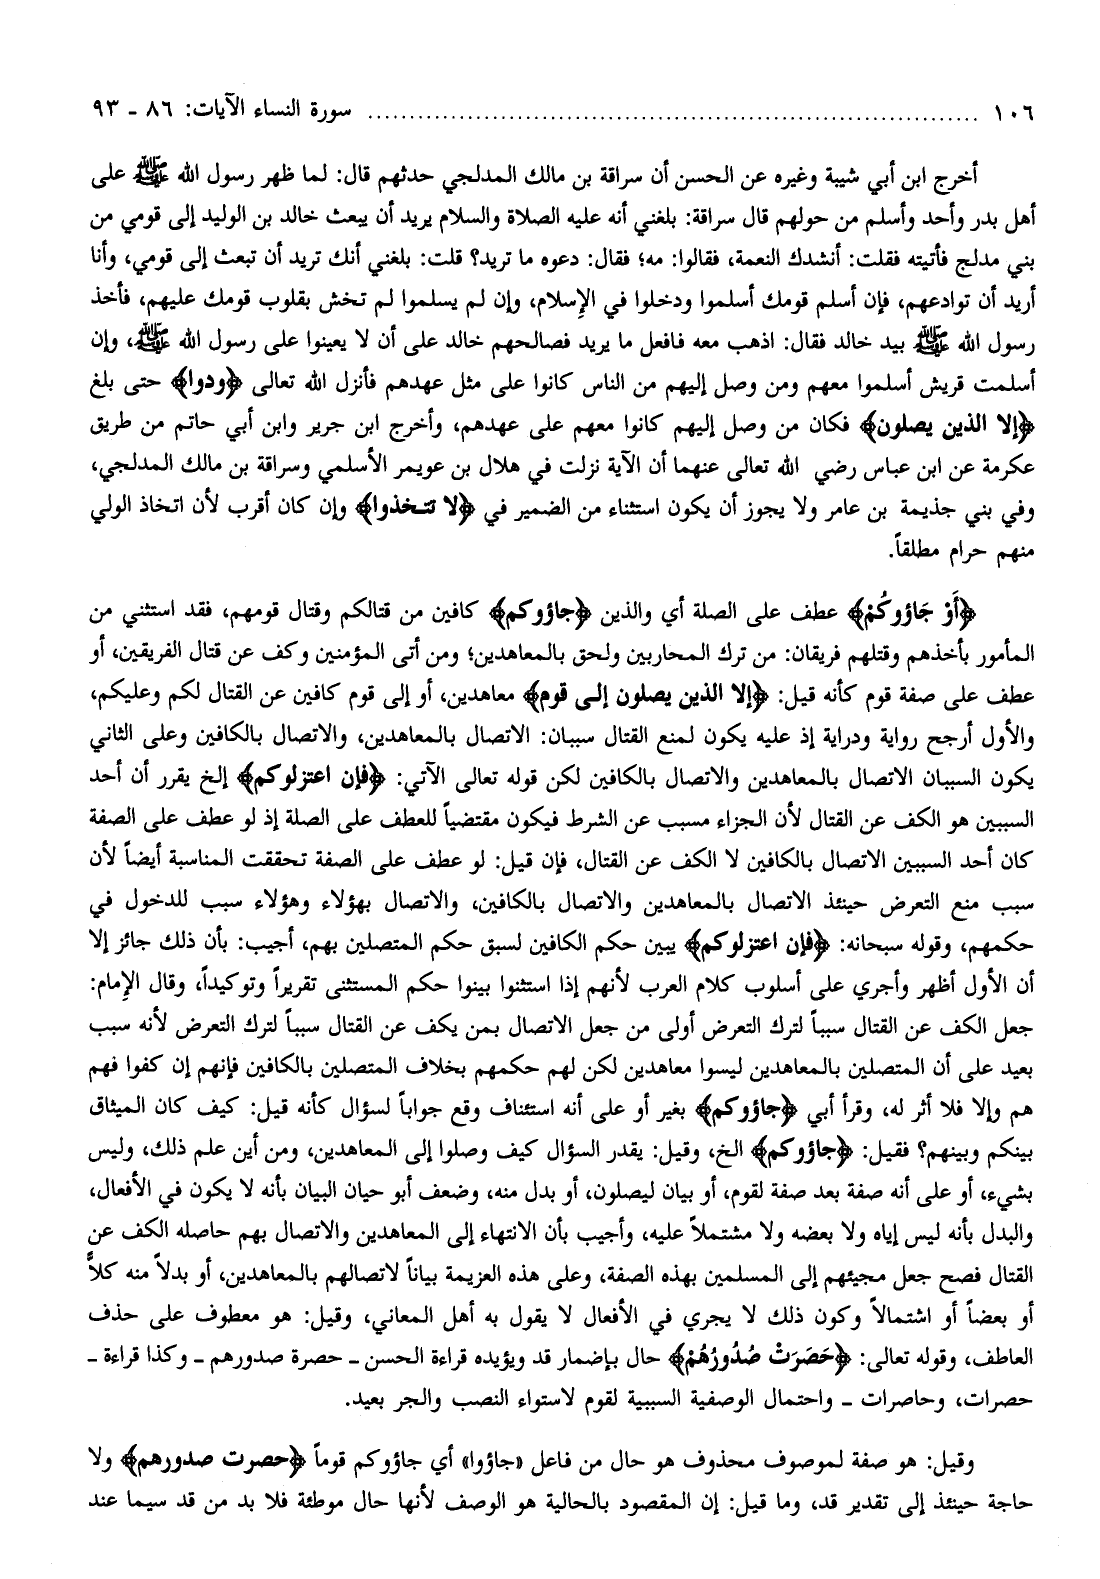 ١٠٦ ........................................ سورة النساء الآيات: ٨٦ ـ ٩٣
أخرج ابن أبي شيبة وغيره عن الحسن أن سراقة بن مالك المدلجي حدثهم قال: لما ظهر رسول الله ﷺ على
أهل بدر وأحد وأسلم من حولهم قال سراقة: بلغني أنه عليه الصلاة والسلام يريد أن يبعث خالد بن الوليد إلى قومي من
بني مدلج فأتيته فقلت: أنشدك النعمة، فقالوا: مه؛ فقال: دعوه ما تريد؟ قلت: بلغني أنك تريد أن تبعث إلى قومي، وأنا
أريد أن توادعهم، فإن أسلم قومك أسلموا ودخلوا في الإِسلام، وإن لم يسلموا لم تخش بقلوب قومك عليهم، فأخذ
رسول الله ﷺ بيد خالد فقال: اذهب معه فافعل ما يريد فصالحهم خالد على أن لا يعينوا على رسول الله ﷺ، وإن
أسلمت قريش أسلموا معهم ومن وصل إليهم من الناس كانوا على مثل عهدهم فأنزل الله تعالى ﴿ودوا﴾ حتى بلغ
﴿إلا الذين يصلون﴾ فكان من وصل إليهم كانوا معهم على عهدهم، وأخرج ابن جرير وابن أبي حاتم من طريق
عكرمة عن ابن عباس رضي الله تعالى عنهما أن الآية نزلت في هلال بن عويمر الأسلمي وسراقة بن مالك المدلجي،
وفي بني جذيمة بن عامر ولا يجوز أن يكون استثناء من الضمير في ﴿لا تتخذوا﴾ وإن كان أقرب لأن اتخاذ الولي
منهم حرام مطلقاً.
﴿أَوْ جَاؤوكُمْ﴾ عطف على الصلة أي والذين ﴿جاؤوكم﴾ كافين من قتالكم وقتال قومهم، فقد استثني من
المأمور بأخذهم وقتلهم فريقان: من ترك المحاربين ولحق بالمعاهدين؛ ومن أتى المؤمنين وكف عن قتال الفريقين، أو
عطف على صفة قوم كأنه قيل: ﴿إلا الذين يصلون إلى قوم﴾ معاهدين، أو إلى قوم كافين عن القتال لكم وعليكم،
والأول أرجح رواية ودراية إذ عليه يكون لمنع القتال سببان: الاتصال بالمعاهدين، والاتصال بالكافين وعلى الثاني
يكون السببان الاتصال بالمعاهدين والاتصال بالكافين لكن قوله تعالى الآتي: ﴿فإن اعتزلوكم﴾ إلخ يقرر أن أحد
السببين هو الكف عن القتال لأن الجزاء مسبب عن الشرط فيكون مقتضياً للعطف على الصلة إذ لو عطف على الصفة
كان أحد السببين الاتصال بالكافين لا الكف عن القتال، فإن قيل: لو عطف على الصفة تحققت المناسبة أيضاً لأن
سبب منع التعرض حينئذ الاتصال بالمعاهدين والاتصال بالكافين، والاتصال بهؤلاء وهؤلاء سبب للدخول في
حكمهم، وقوله سبحانه: ﴿فإن اعتزلوكم﴾ يبين حكم الكافين لسبق حكم المتصلين بهم، أجيب: بأن ذلك جائز إلا
أن الأول أظهر وأجري على أسلوب كلام العرب لأنهم إذا استثنوا بينوا حكم المستثنى تقريراً وتوكيداً، وقال الإِمام:
جعل الكف عن القتال سبباً لترك التعرض أولى من جعل الاتصال بمن يكف عن القتال سبباً لترك التعرض لأنه سبب
بعيد على أن المتصلين بالمعاهدين ليسوا معاهدين لكن لهم حكمهم بخلاف المتصلين بالكافين فإنهم إن كفوا فهم
هم وإلا فلا أثر له، وقرأ أبي ﴿جاؤوكم﴾ بغير أو على أنه استئناف وقع جواباً لسؤال كأنه قيل: كيف كان الميثاق
بينكم وبينهم؟ فقيل: ﴿جاؤوكم﴾ الخ، وقيل: يقدر السؤال كيف وصلوا إلى المعاهدين، ومن أين علم ذلك، وليس
بشيء، أو على أنه صفة بعد صفة لقوم، أو بيان ليصلون، أو بدل منه، وضعف أبو حيان البيان بأنه لا يكون في الأفعال،
والبدل بأنه ليس إياه ولا بعضه ولا مشتملاً عليه، وأجيب بأن الانتهاء إلى المعاهدين والاتصال بهم حاصله الكف عن
القتال فصح جعل مجيئهم إلى المسلمين بهذه الصفة، وعلى هذه العزيمة بياناً لاتصالهم بالمعاهدين، أو بدلاً منه كلاًّ
أو بعضاً أو اشتمالاً وكون ذلك لا يجري في الأفعال لا يقول به أهل المعاني، وقيل: هو معطوف على حذف
العاطف، وقوله تعالى: ﴿حَصَرَتْ صُدُورُهُمْ﴾ حال بإضمار قد ويؤيده قراءة الحسن ـ حصرة صدورهم ـ وكذا قراءة ـ
حصرات، وحاصرات ـ واحتمال الوصفية السببية لقوم لاستواء النصب والجر بعيد.
وقيل: هو صفة لموصوف محذوف هو حال من فاعل «جاؤوا» أي جاؤوكم قوماً ﴿حصرت صدورهم﴾ ولا
حاجة حينئذ إلى تقدير قد، وما قيل: إن المقصود بالحالية هو الوصف لأنها حال موطئة فلا بد من قد سيما عند